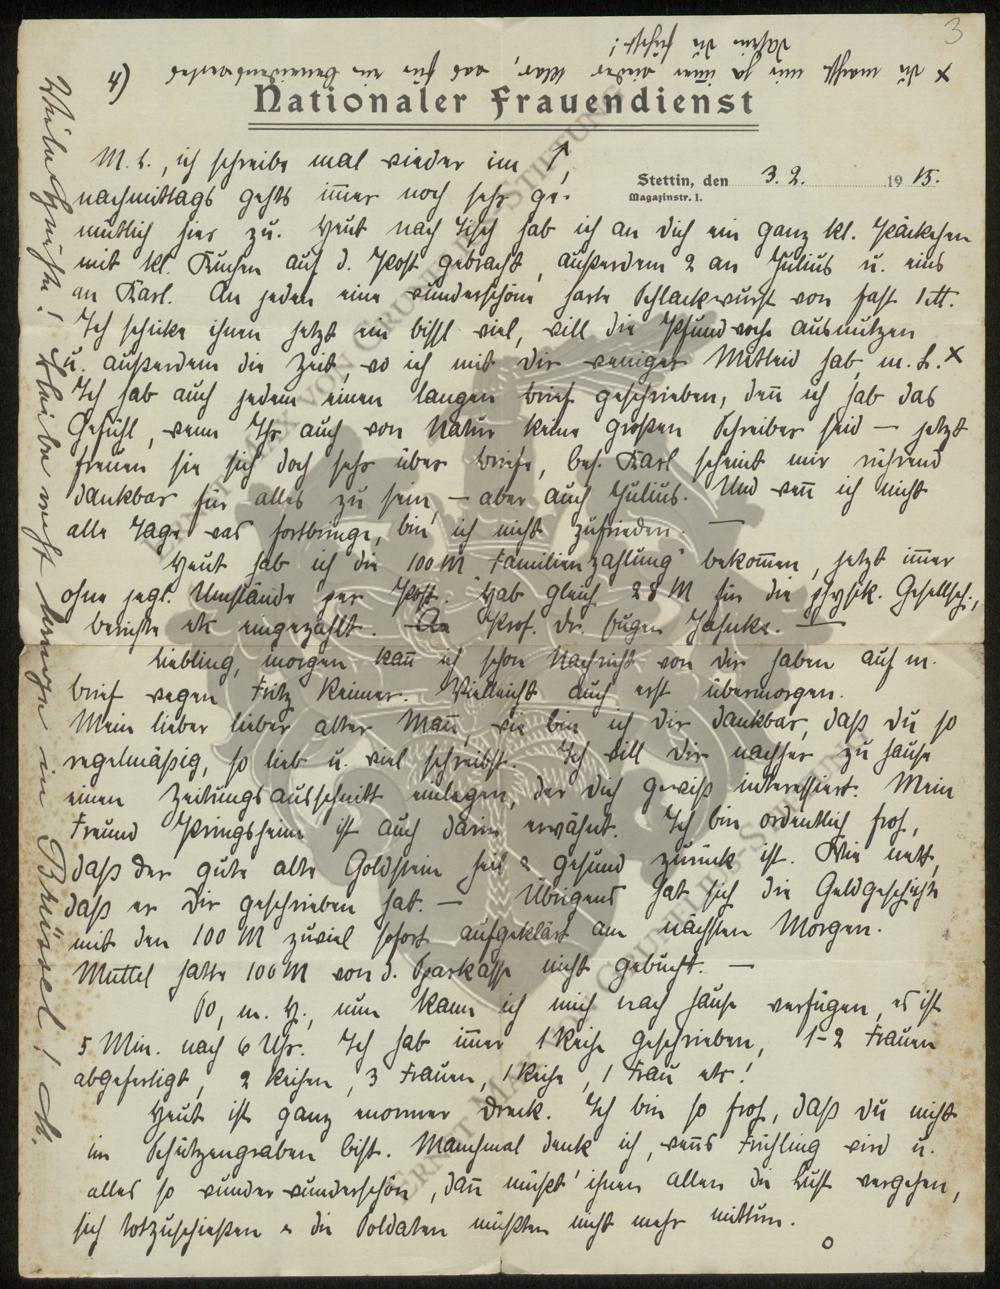 3
4)
x Du machst mir ja immer wieder klar, was für ein beneidenswertes
Dasein Du führst!
Nationaler Frauendienst
M. L., ich schreibe mal wieder im ↑,
Stettin, den 3. 2. 1915.
Magazinstr. 1.
nachmittags gehts im̄er noch sehr ge-
mütlich hier zu. Heut nach Tisch hab ich an Dich ein ganz kl. Päckchen
mit kl. Kuchen auf d. Post gebracht, außerdem 2 an Julius u. eins
an Karl. An jeden eine wunderschöne harte Schlackwurst von fast 1 tt.
Ich schicke ihnen jetzt ein bissl viel, will die Pfundwoche ausnutzen
u. außerdem die Zeit, wo ich mit Dir weniger Mitleid hab, m. L. x
Ich hab auch jedem einen langen Brief geschrieben, den̄ ich hab das
Gefühl, wenn Ihr auch von Natur keine großen Schreiber seid — jetzt
freuen sie sich doch sehr über Briefe, bes. Karl scheint mir rührend
dankbar für alles zu sein, — aber auch Julius. Und wen̄ ich nicht
alle Tage was fortbringe, bin ich nicht zufrieden. —
Heut hab ich die 100 M „Familienzahlung" bekom̄en, jetzt im̄er
ohne jegl. Umstände per Post. Hab gleich 28 M für die physik. Gesellsch.,
Berichte etc eingezahlt. An Prof. Dr. Eugen Jahnke. —
Liebling, morgen kan̄ ich schon Nachricht von Dir haben auf m.
Brief wegen Fritz Reimer. Vielleicht auch erst übermorgen.
Mein lieber lieber alter Man̄, wie bin ich Dir dankbar, daß Du so
regelmäßig, so lieb u. viel schreibst. Ich will Dir nachher zu Hause
einen Zeitungsausschnitt einlegen, der Dich gewiß interessiert. Mein
Freund Pringsheim ist auch darin erwähnt. Ich bin ordentlich froh,
daß der gute alte Goldstein heil & gesund zurück ist. Wie nett,
daß er Dir geschrieben hat. — Übrigens hat sich die Geldgeschichte
mit den 100 M zuviel sofort aufgeklärt am nächsten Morgen.
Muttel hatte 100 M von d. Sparkasse nicht gebucht. —
So, m. H., nun kann ich mich nach Hause verfügen, es ist
5 Min. nach 6 Uhr. Ich hab im̄er 1 Reihe geschrieben, 1-2 Frauen
abgefertigt, 2 Reihen, 3 Frauen, 1 Reihe, 1 Frau etc!
Heut ist ganz enormer Dreck. Ich bin so froh, daß Du nicht
im Schützengraben bist. Manchmal denk ich, wen̄s Frühling wird u.
alles so wunderwunderschön, dan̄ müßt' ihnen allen die Lust vergehen,
sich totzuschießen & die Soldaten müßten nicht mehr mittun.
Bleibe recht lange in Brüssel!